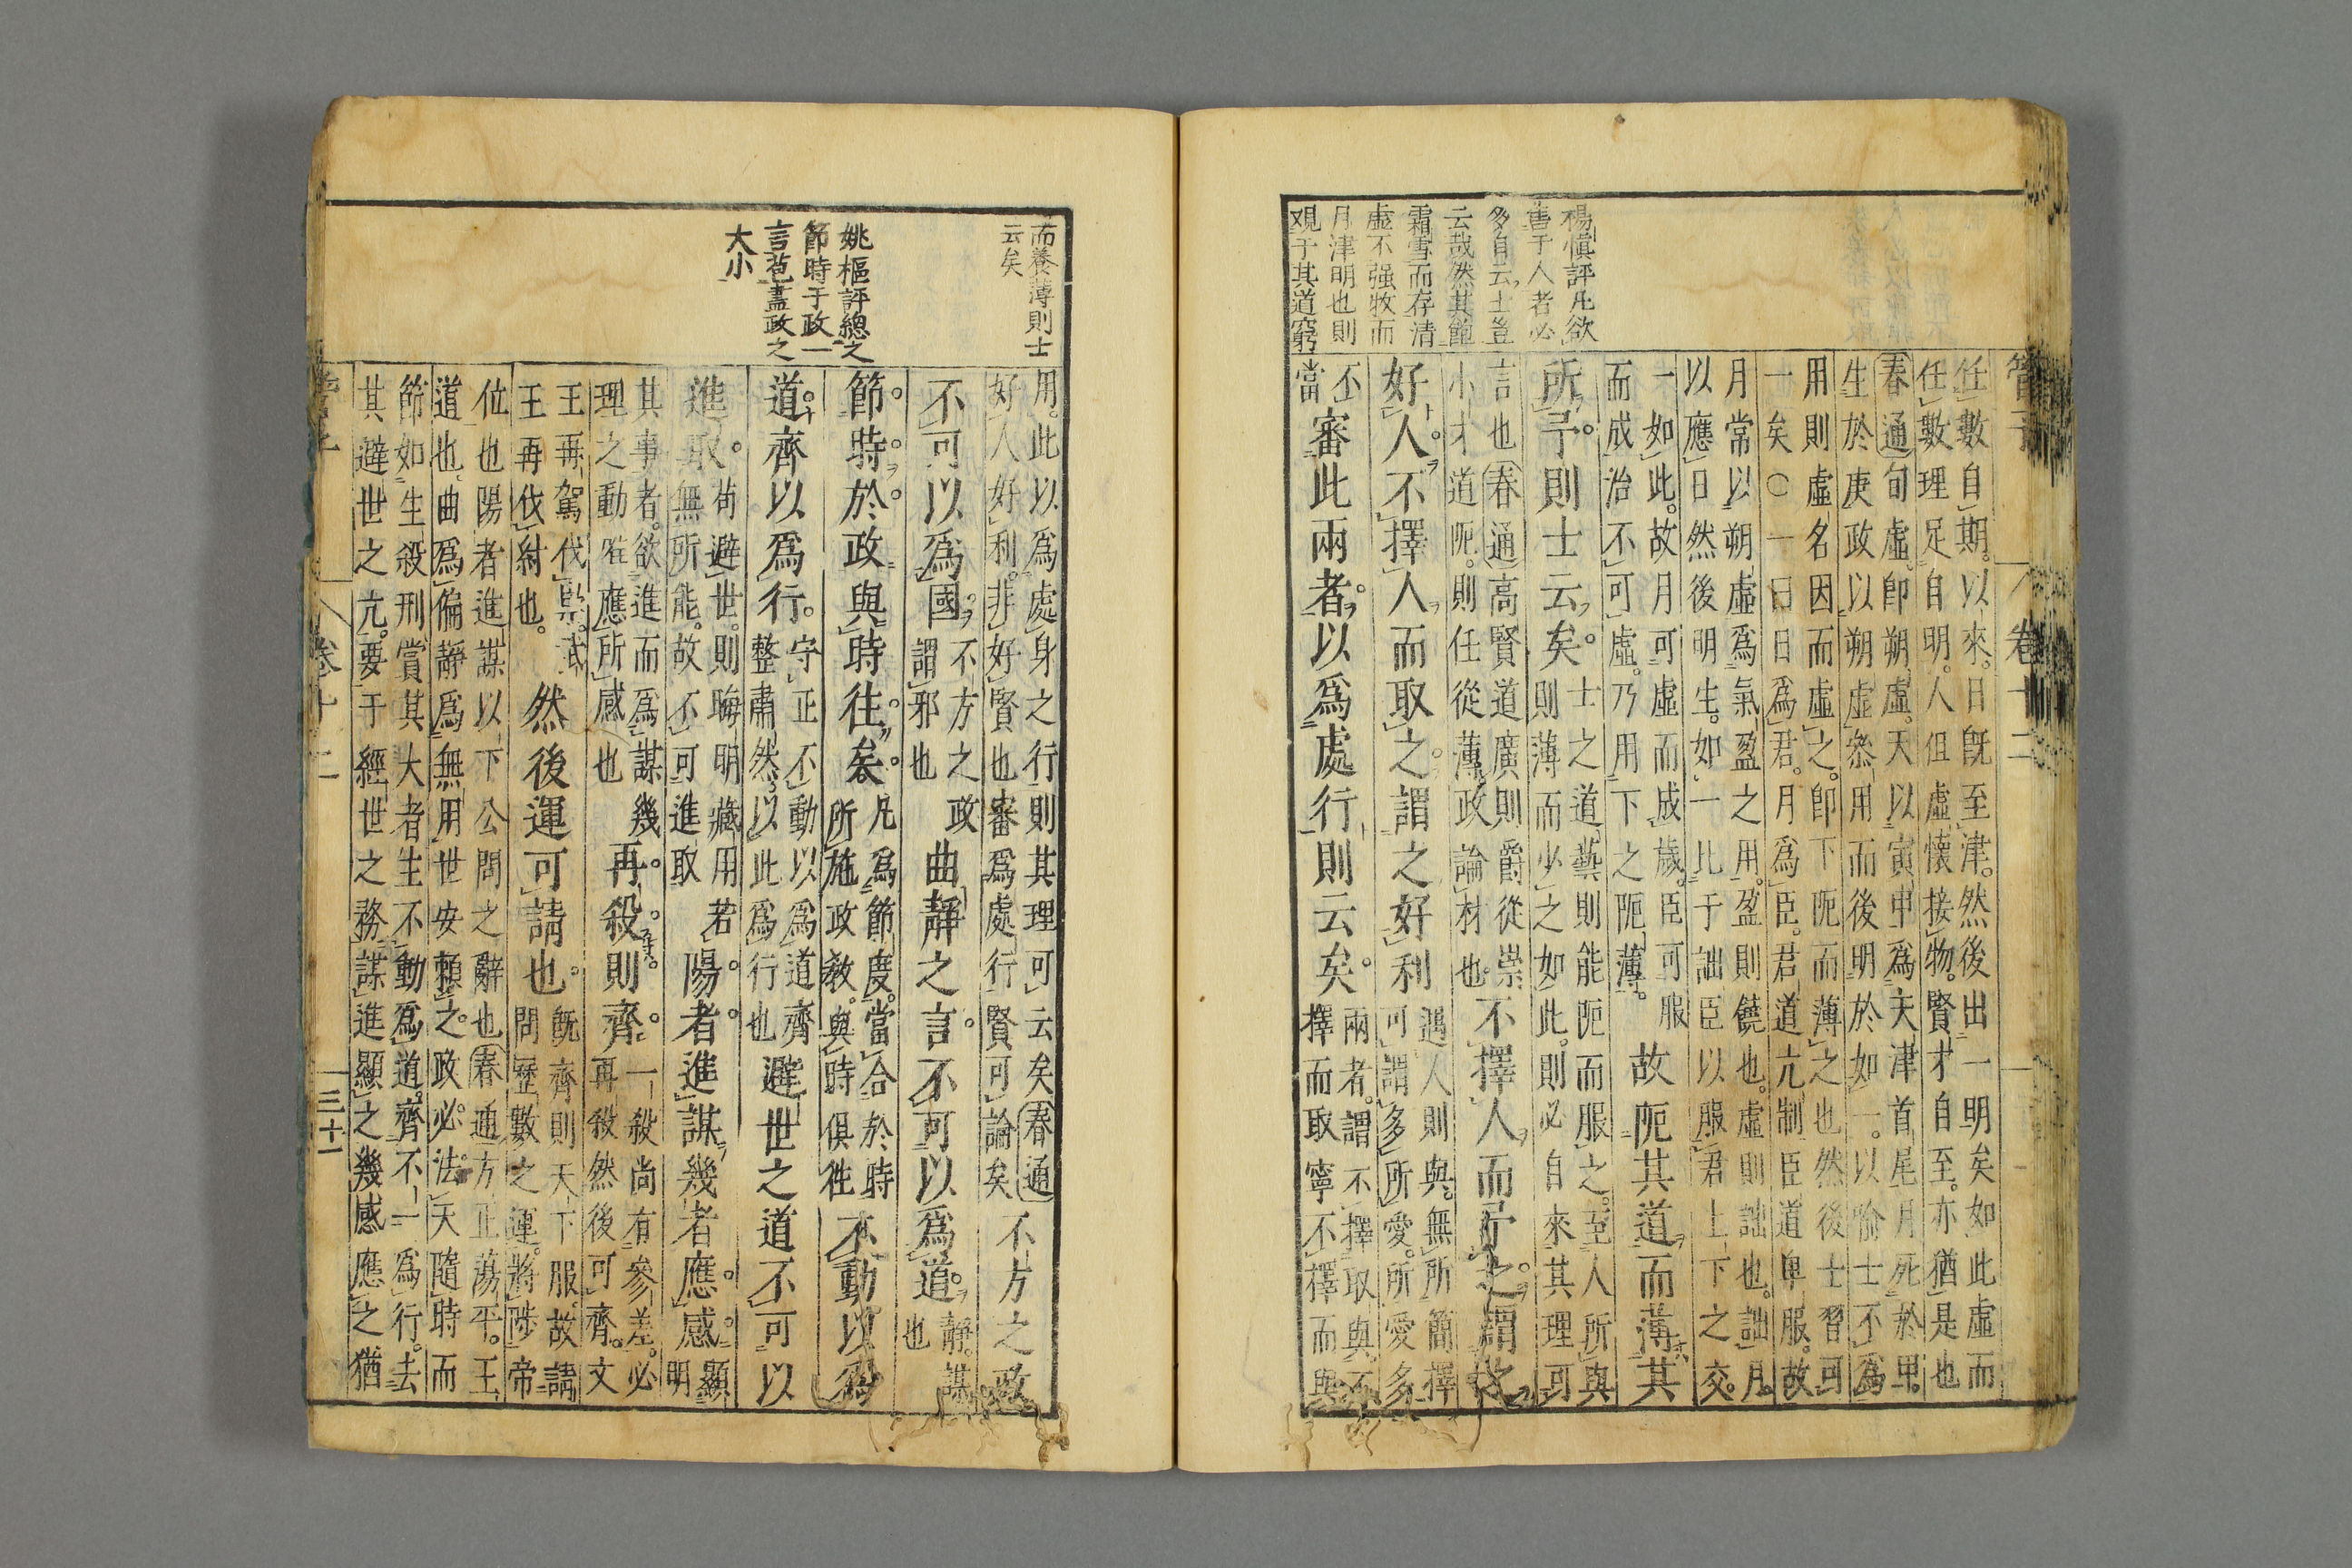 管子 卷十二
楊慎評凡欲
售于人者必
多自云士豈
云哉然其飽
霜雪而存清
虛不强牧而
月津明也則
覌于其道窮
任數自期。以來。日旣至津。然後出一明矣如此虛而
任數理足自明。人但虛懷接物。賢才自至。亦猶是也
春通句虛。卽朔虛。天以寅申爲天津首尾月死於甲。
生於庚政以朔虛叅用而後明於如一。以喻士不爲
用則虛名因而虛之。卽下阨而薄之也然後士習可
一矣〇一曰日爲君。月爲臣。君道亢制臣道卑服。故
月常以朔虛爲氣盈之用。盈則饒也。虛則詘也。詘月。
以應日然後明生。如一比于詘臣以服君上下之交。
一如此。故月可虛而成歲。臣可服
而成治不可虛。乃用下之阨薄。
故阨其道而薄其
所予則士云矣。
士之道藝則能阨而服之。至人所與
則薄而少之如此。則必自來其理可
言也春通高賢道廣則爵從崇
小才道阨。則任從薄政論材也。
不擇人而予之。謂之
好人。不擇人而取之。謂之好利
遇人則與。無所簡擇
可謂多所愛。所愛多
不
當
審此兩者。以爲處行則云矣。
兩者。謂不擇取與。不
擇而取寧不擇而與
而養薄則士
云矣
姚樞評總之
節時于政一
言苞盡政之
大小
用。此以爲處身之行則其理可云矣春通
好人好利。非好賢也審爲處行賢可論矣
不方之政
不可以爲國。
不方之政
謂邪也
曲靜之言。不可以爲道。
靜。謀
也
節時。於政與時往矣。
凡爲節度。當合於時
所施政敎。與時俱往
不動以爲
道。齊以爲行。
守正不動以爲道齊
整肅然以此爲行也
避世之道不可以
進取。
苟避世。則晦明藏用若
無所能。故不可進取
陽者進謀幾者應感。
顯
明
其事者。欲進而爲謀幾
理之動唯應所感也
再殺則齊。
一殺尚有參差。必
再殺然後可齊。文
王再駕伐崇。武
王再伐紂也。
然後運可請也。
旣齊則天下服。故請
問歷數之運。將陟帝
位也陽者進謀以下公問之辭也春通方正蕩平。王
道也。曲爲偏靜爲無用世安賴之。政必法天隨時而
節如生殺刑賞其大者生不動爲道。齊不一爲行。去
其避世之亢。要于經世之務謀進顯之幾感應之猶
卷十二 三十一